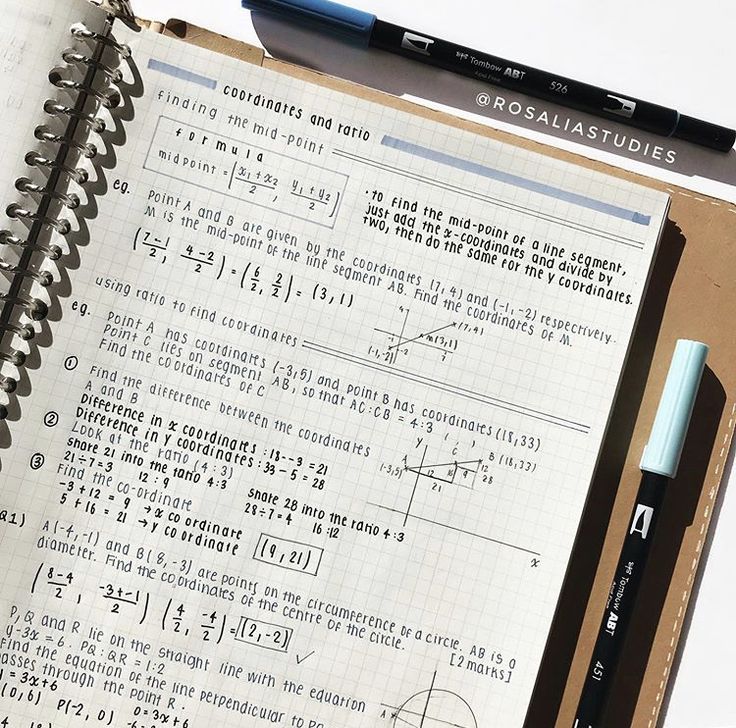 coordinates and ratio
finding the mid-point
formula
midpoint = (x₁+x₂/2, y₁+y₂/2)
· to find the mid-point of a line segment,
just add the x-coordinates and divide by
two, then do the same for the y coordinates.
eg. Point A and B are given by the coordinates (7,4) and (-1,-2) respectively.
M is the mid-point of the line segment AB. Find the coordinates of M.
(7-1/2, 4-2/2) = (6/2, 2/2) = (3,1)
4
(7,4)
M(3,1)
-1
7
(-1,-2)
-2
using ratio to find coordinates
eg. Point A has coordinates (-3,5) and point B has coordinates (18,33)
Point C lies on segment AB, so that AC:CB = 4:3
Find the coordinates of C
① Find the difference between the coordinates
A and B
Difference in x coordinates : 18--3 = 21
Difference in y coordinates : 33-5 = 28
② Look at the ratio (4:3)
share 21 into the ratio 4:3
21÷7=3 12:9
share 28 into the ratio 4:3
28÷7=4 16:12
③ Find the co-ordinate
-3+12 = 9 → x coordinate
5+16 = 21 → y coordinate
(9,21)
y
( , )
C
B (18,33)
A
(-3,5)
12
16
9
12
28
21
x
Q1) A(-4,-1) and B(8,-3) are points on the circumference of a circle. AB is a
diameter. Find the coordinates of the centre of the circle.
[2 marks]
(8-4/2, -3+-1/2) (4/2, -4/2) = (2,-2) ✓
P, Q and R lie on the straight line with the equation
y-3x=6. PQ:QR = 1:2
Find the equation of the line perpendicular to PQ
passes through the point R.
y = 3x+6
(0,6) P(-2,0) 0=3x+6
A
@ROSALIASTUDIES
Tombow ABT
526
Tombow ABT
451